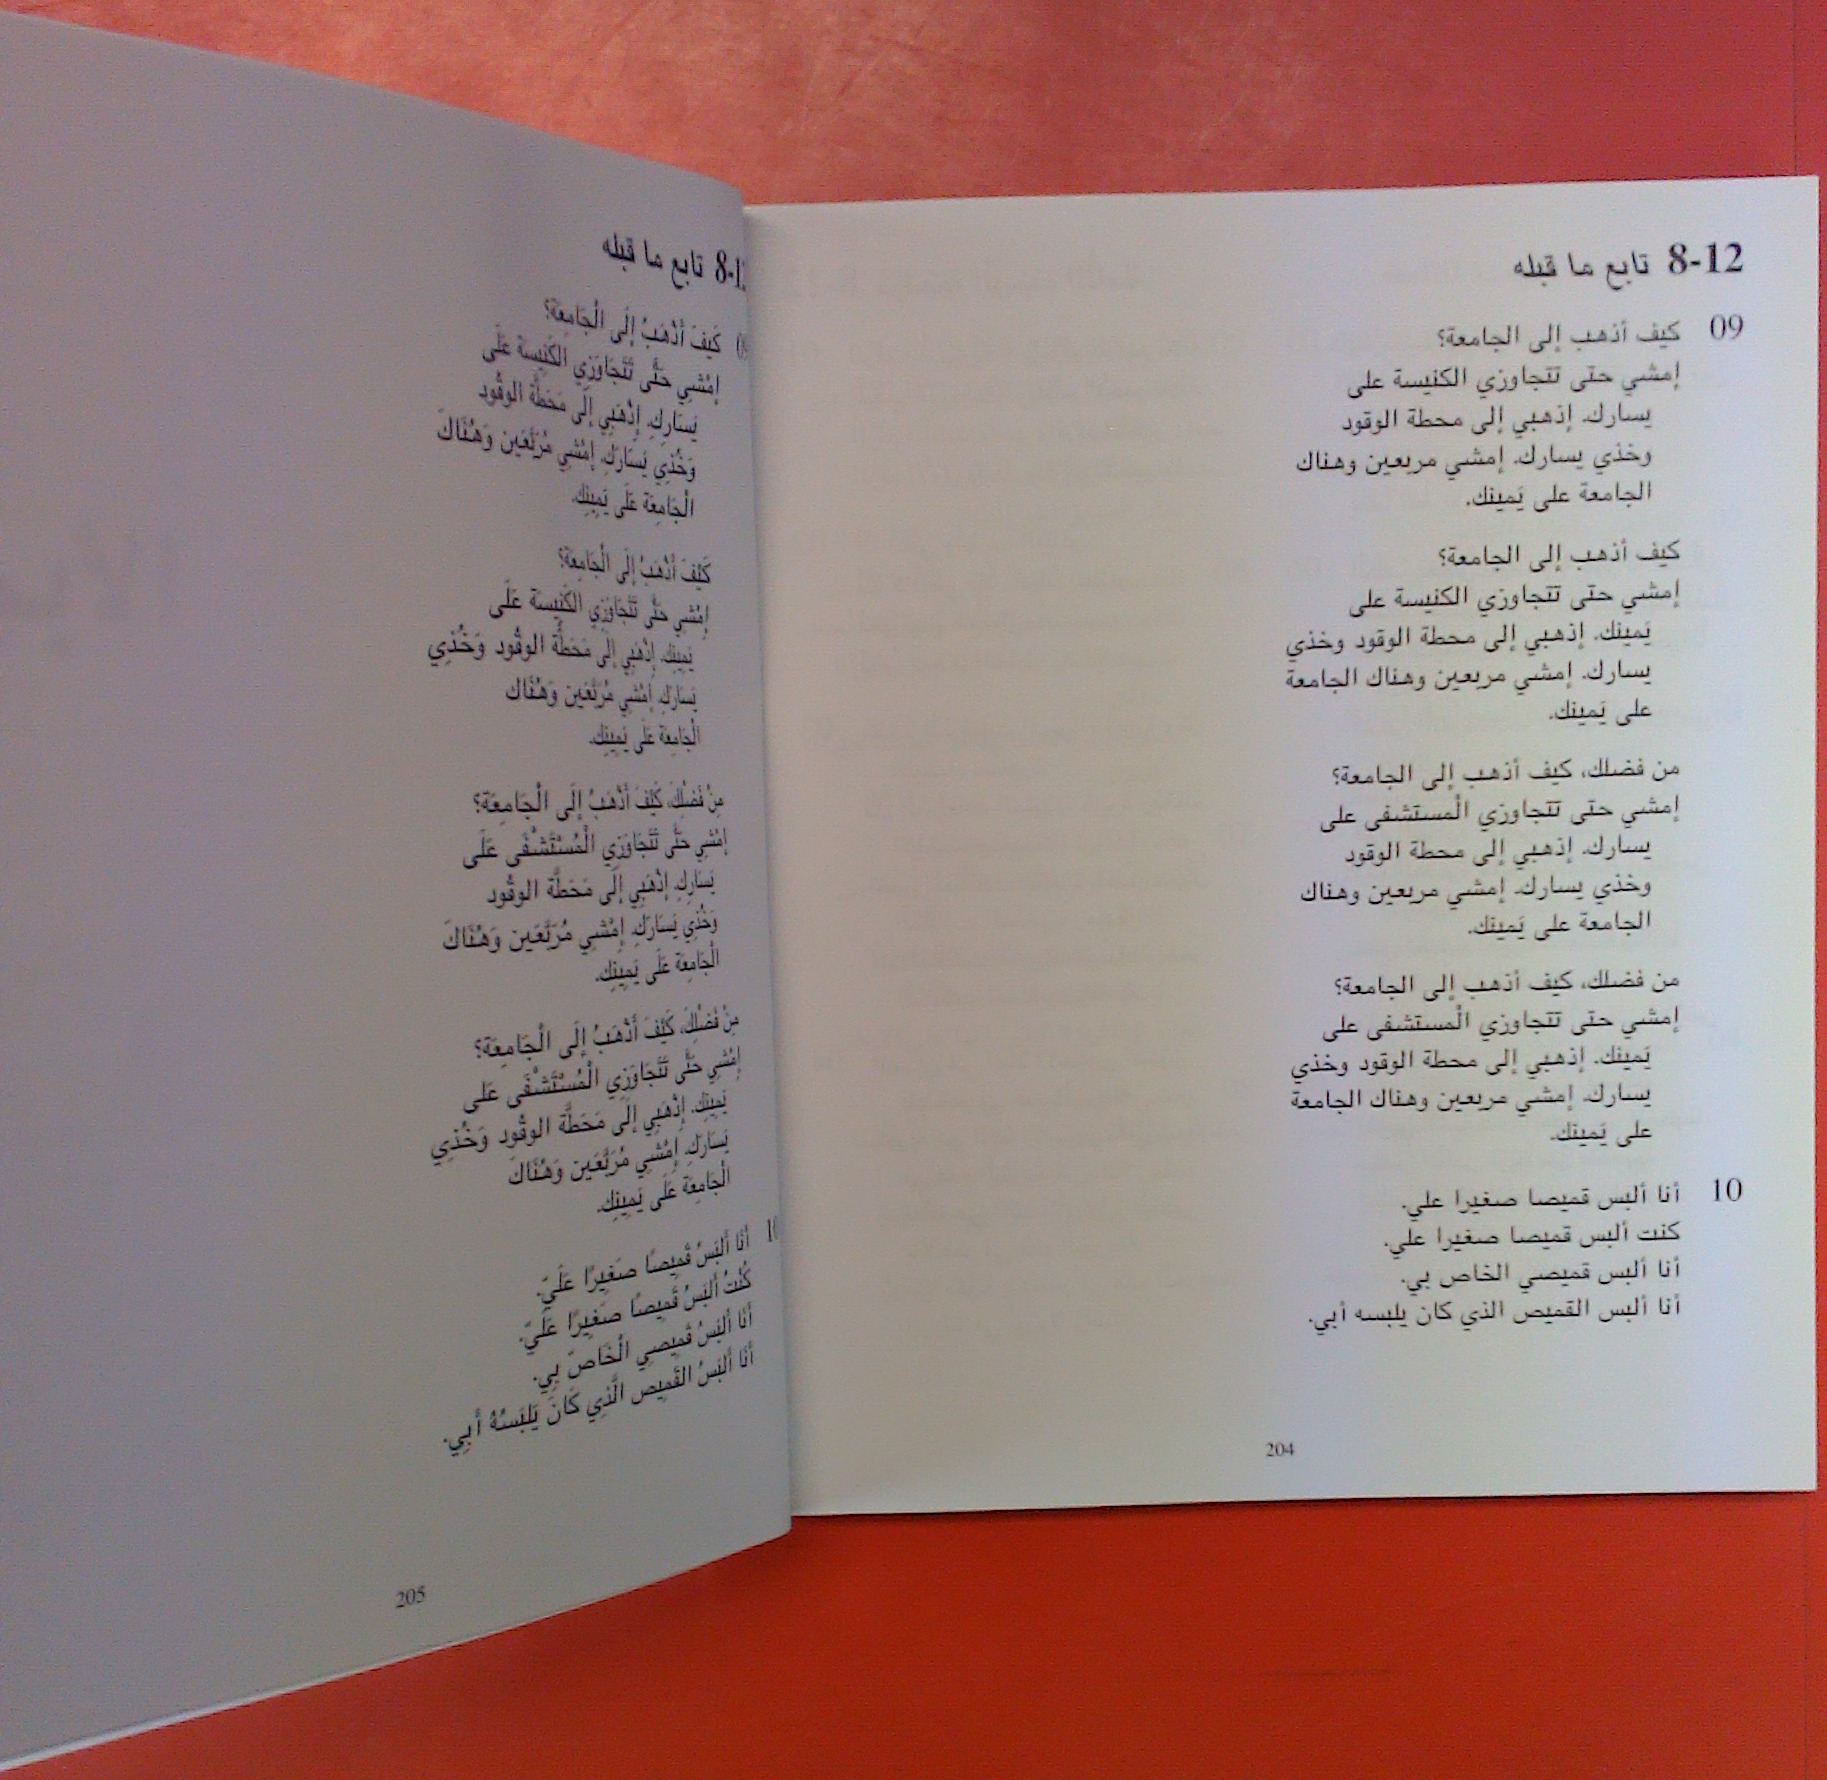 8-12 تابع ما قبله
09 كيف أذهب إلى الجامعة؟
إمشي حتى تتجاوزي الكنيسة على
يسارك. إذهبي إلى محطة الوقود
وخذي يسارك. إمشي مربعين وهناك
الجامعة على يَمينك.
كيف أذهب إلى الجامعة؟
إمشي حتى تتجاوزي الكنيسة على
يَمينك. إذهبي إلى محطة الوقود وخذي
يسارك. إمشي مربعين وهناك الجامعة
على يَمينك.
من فضلك، كيف أذهب إلى الجامعة؟
إمشي حتى تتجاوزي الْمستشفى على
يسارك. إذهبي إلى محطة الوقود
وخذي يسارك. إمشي مربعين وهناك
الجامعة على يَمينك.
من فضلك، كيف أذهب إلى الجامعة؟
إمشي حتى تتجاوزي الْمستشفى على
يَمينك. إذهبي إلى محطة الوقود وخذي
يسارك. إمشي مربعين وهناك الجامعة
على يَمينك.
10 أنا ألبس قميصا صغيرا علي.
كنت ألبس قميصا صغيرا علي.
أنا ألبس قميصي الخاص بي.
أنا ألبس القميص الذي كان يلبسه أبي.
204
8-12 تابع ما قبله
09 كَيفَ أَذْهَبُ إلَى الْجَامِعَة؟
إمْشِي حَتَّى تَتَجَاوَزِي الكَنِيسَة عَلَى
يَسَارِكِ. إِذْهَبِي إلَى مَحَطَّة الوقُود
وَخُذِي يَسَارَكِ. إمْشِي مُرَبَّعَين وَهُنَاكَ
الْجَامِعَة عَلَى يَمِينِك.
كَيْفَ أَذْهَبُ إلَى الْجَامِعَة؟
إمْشِي حَتَّى تَتَجَاوَزِي الكَنِيسَة عَلَى
يَمِينِك. إذْهَبِي إلَى مَحَطَّة الوقُود وَخُذِي
يَسَارَكِ. إمْشِي مُرَبَّعَين وَهُنَاك
الْجَامِعَة عَلَى يَمِينِك.
مِنْ فَضْلِكَ، كَيْفَ أَذْهَبُ إلَى الْجَامِعَة؟
إمْشِي حَتَّى تَتَجَاوَزِي الْمُسْتَشْفَى عَلَى
يَسَارِكِ. إذْهَبِي إلَى مَحَطَّة الوقُود
وَخُذِي يَسَارَكِ. إمْشِي مُرَبَّعَين وَهُنَاكَ
الْجَامِعَة عَلَى يَمِينِك.
مِنْ فَضْلِكَ، كَيْفَ أَذْهَبُ إلَى الْجَامِعَة؟
إمْشِي حَتَّى تَتَجَاوَزِي الْمُسْتَشْفَى عَلَى
يَمِينِك. إذْهَبِي إلَى مَحَطَّة الوقُود وَخُذِي
يَسَارَكِ. إمْشِي مُرَبَّعَين وَهُنَاكَ
الْجَامِعَة عَلَى يَمِينِك.
10 أنَا أَلبَسُ قَمِيصًا صَغِيرًا عَلَيّ.
كُنْتُ أَلبَسُ قَمِيصًا صَغِيرًا عَلَيّ.
أنَا أَلبَسُ قَمِيصِي الْخَاصّ بِي.
أنَا أَلبَسُ القَمِيص الَّذِي كَانَ يَلبَسُهُ أَبِي.
205